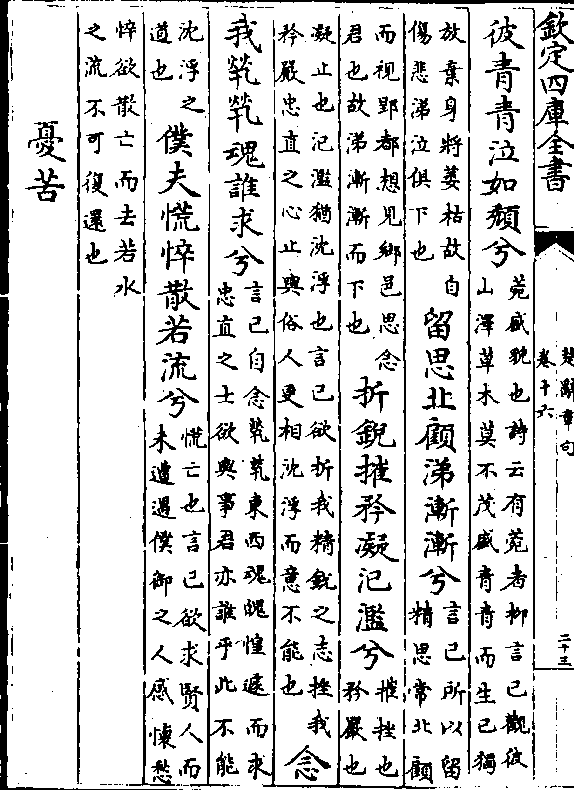 欽定四庫全書
楚辭章句
卷十六
二十三
彼青青泣如頹兮
菀盛貌也詩云有菀者柳言己觀彼
山澤草木莫不茂盛青青而生己獨
放棄身將萎枯故自
傷悲涕泣俱下也
留思北顧涕漸漸兮
言己所以留
精思常北顧
而視郢都想見鄉邑思念
君也故涕漸漸而下也
折銳摧矜凝氾濫兮
摧挫也
矜嚴也
凝止也氾濫猶沈浮也言己欲折我精銳之志挫我
矜嚴忠直之心止與俗人更相沈浮而意不能也
念
我煢煢魂誰求兮
言己自念煢煢東西魂魄惶遽而求
忠直之士欲與事君亦誰乎此不能
沈浮之
道也
僕夫慌悴散若流兮
慌亡也言己欲求賢人而
未遭遇僕御之人感懷愁
悴欲散亡而去若水
之流不可復還也
憂苦